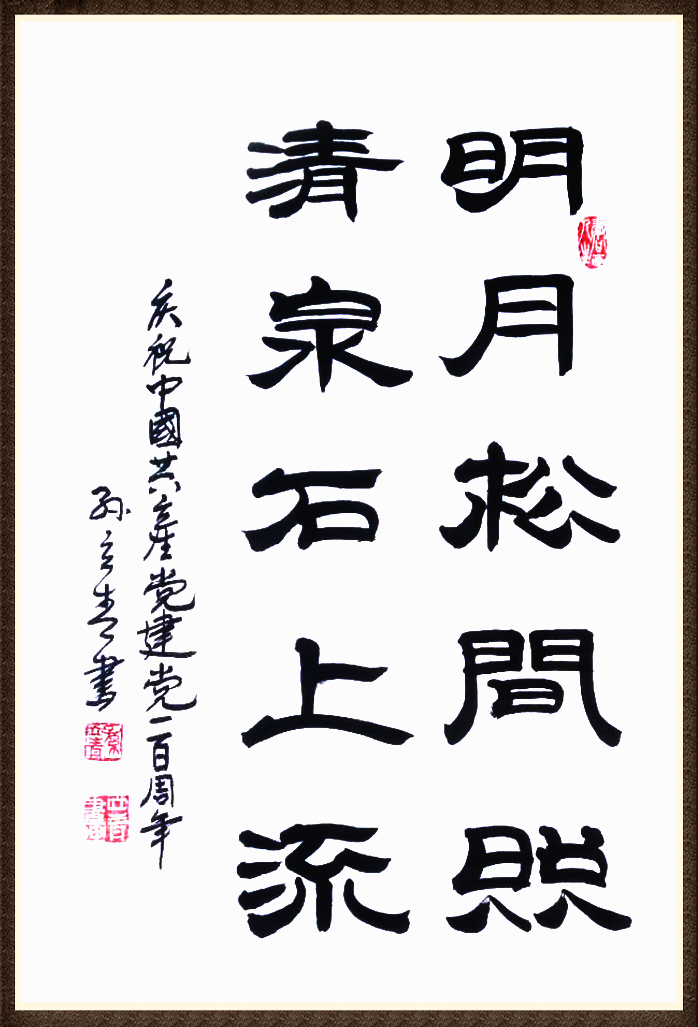 明月松間照
清泉石上流
庆祝中國共產党建党一百周年
孙立青書